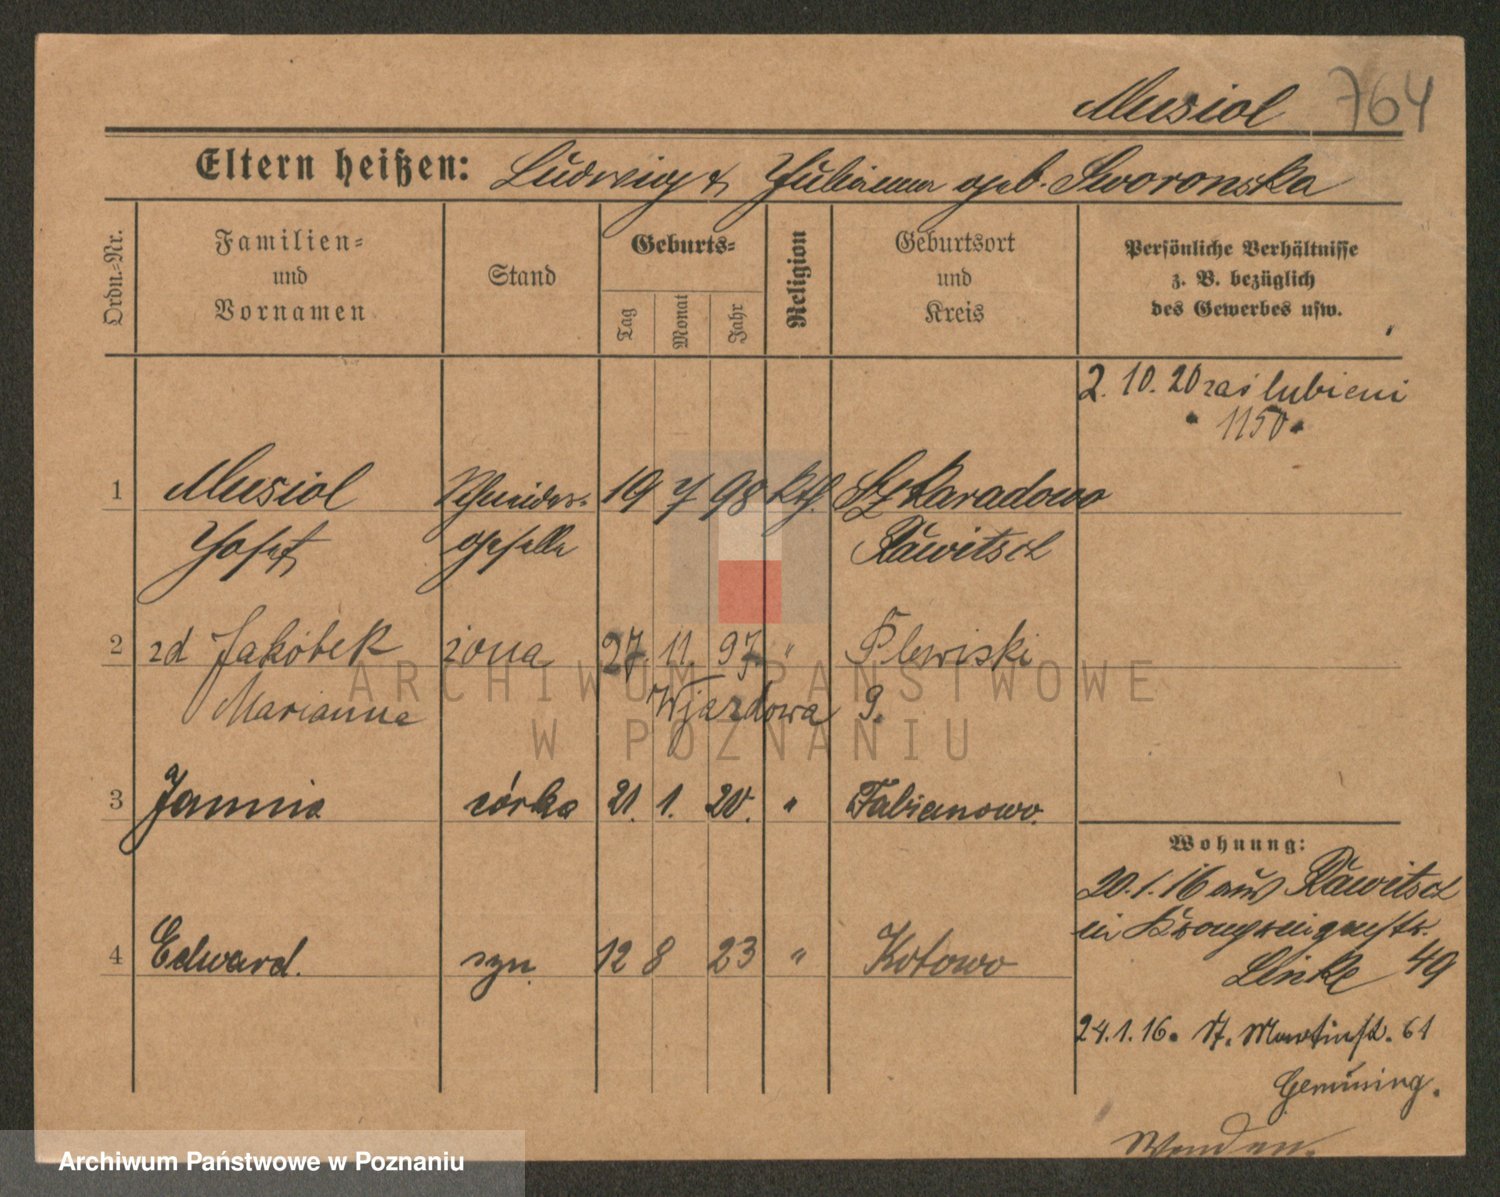 Musiol 764
Eltern heißen: Ludwig & Julianna geb. Sworonska
Ordn.-Nr.
Familien-
und
Vornamen
Stand
Geburts-
Tag
Monat
Jahr
Religion
Geburtsort
und
Kreis
Persönliche Verhältnisse
z. B. bezüglich
des Gewerbes usw.
2. 10. 20 zaślubieni
1150
1 Musiol Schneider- 19 7 98 kth. Szkaradowo
Josef geselle Rawitsch
2 zd Jakóbek żona 27. 11 97. " Plewiski
Marianna Wjazdowa 9.
3 Jannia córka 21. 1. 20. " Fabianowo.
4 Edward. syn 12 8 23 " Kotowo
Wohnung:
20.1.16 aus Rawitsch
in Kronprinzenstr.
Linke 49
24.1.16. St. Martinstr. 61
Wenden.
ARCHIWUM PAŃSTWOWE
W POZNANIU
Archiwum Państwowe w Poznaniu